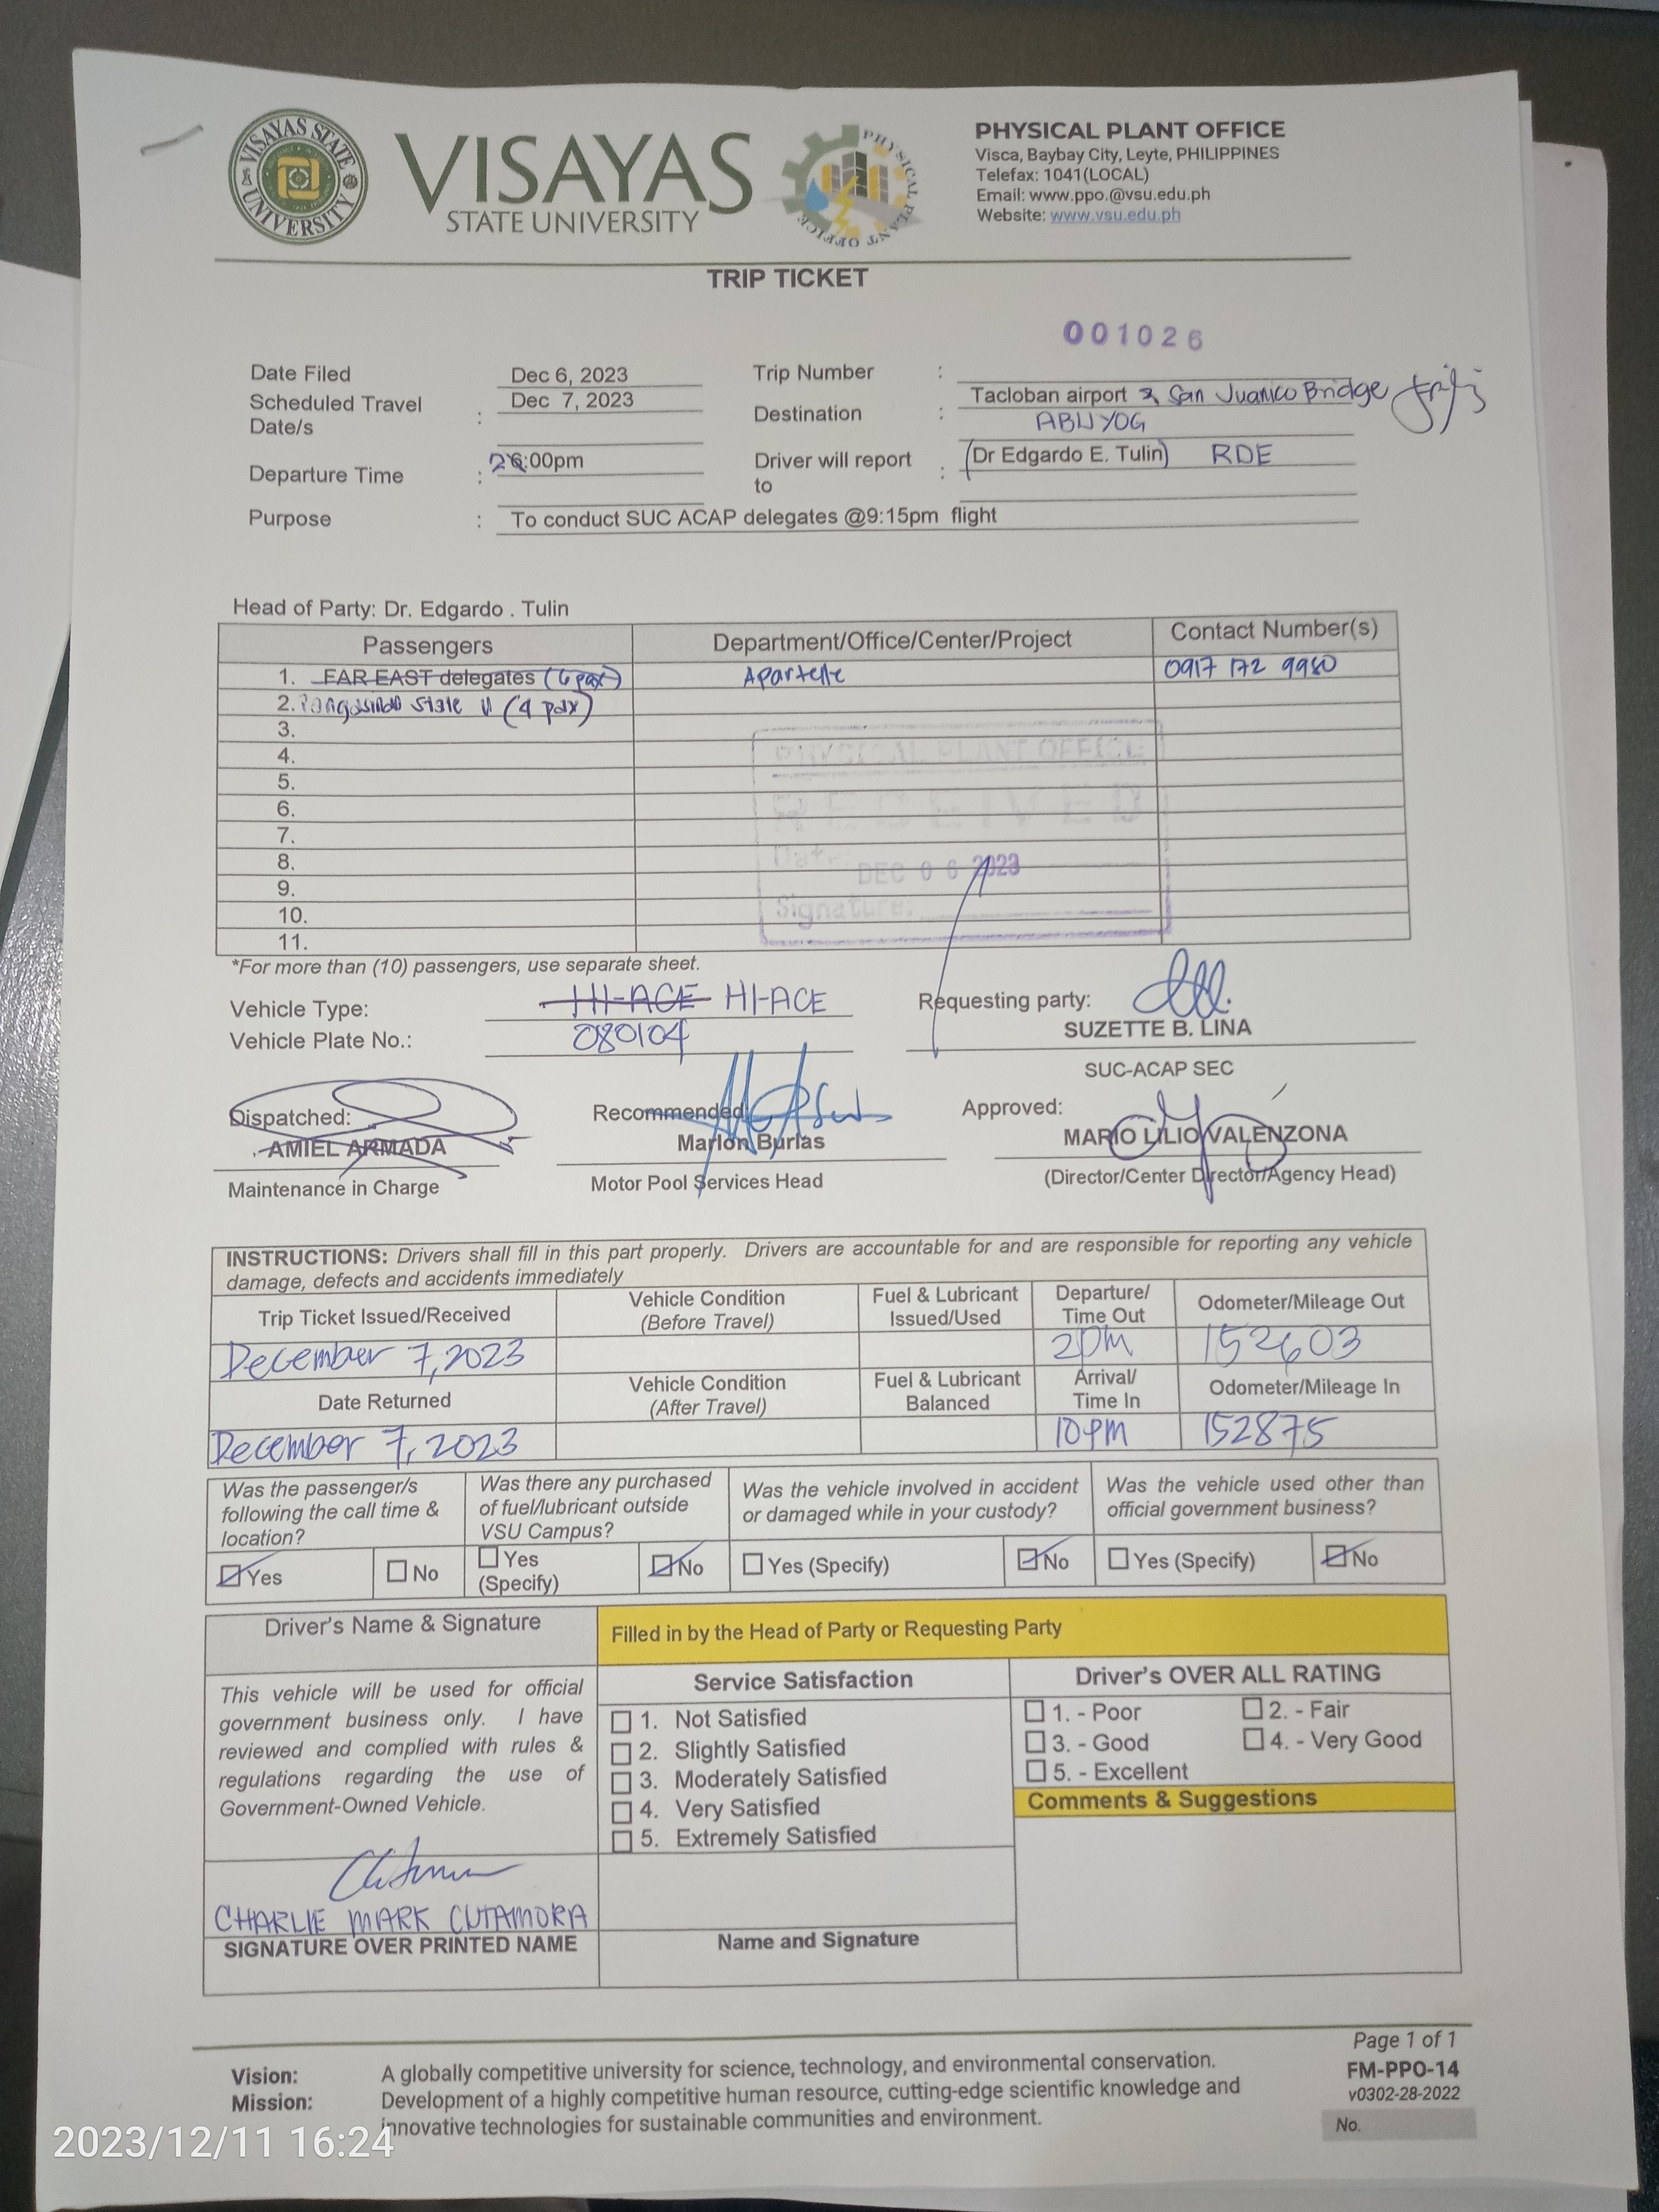 VISAYAS STATE UNIVERSITY
VISAYAS
STATE UNIVERSITY
PHYSICAL PLANT OFFICE
PHYSICAL PLANT OFFICE
Visca, Baybay City, Leyte, PHILIPPINES
Telefax: 1041(LOCAL)
Email: www.ppo.@vsu.edu.ph
Website: www.vsu.edu.ph
TRIP TICKET
001026
Date Filed Dec 6, 2023 Trip Number :
Scheduled Travel Date/s : Dec 7, 2023 Destination : Tacloban airport & San Juanico Bridge
ABUYOG
Departure Time : 2:00pm Driver will report to : (Dr Edgardo E. Tulin) RDE
Purpose : To conduct SUC ACAP delegates @9:15pm flight
Head of Party: Dr. Edgardo . Tulin
Passengers Department/Office/Center/Project Contact Number(s)
1. FAR EAST delegates (6 pax) Apartelle 0917 172 9980
2. Pangasinan State U (4 pax)
3.
4.
5.
6.
7.
8.
9.
10.
11.
PHYSICAL PLANT OFFICE
RECEIVED
Date:
DEC 06 2023
Signature:
*For more than (10) passengers, use separate sheet.
Vehicle Type: HI-ACE HI-ACE
Vehicle Plate No.: 080104
Requesting party:
SUZETTE B. LINA
SUC-ACAP SEC
Dispatched: Recommended Approved:
AMIEL ARMADA Marlon Burlas MARIO LILIO VALENZONA
Maintenance in Charge Motor Pool Services Head (Director/Center Director/Agency Head)
INSTRUCTIONS: Drivers shall fill in this part properly. Drivers are accountable for and are responsible for reporting any vehicle
damage, defects and accidents immediately
Trip Ticket Issued/Received Vehicle Condition (Before Travel) Fuel & Lubricant Issued/Used Departure/ Time Out Odometer/Mileage Out
December 7, 2023 2pm 152603
Date Returned Vehicle Condition (After Travel) Fuel & Lubricant Balanced Arrival/ Time In Odometer/Mileage In
December 7, 2023 10pm 152875
Was the passenger/s following the call time & location?
Yes No
Was there any purchased of fuel/lubricant outside VSU Campus?
Yes (Specify) No
Was the vehicle involved in accident or damaged while in your custody?
Yes (Specify) No
Was the vehicle used other than official government business?
Yes (Specify) No
Driver's Name & Signature
Filled in by the Head of Party or Requesting Party
This vehicle will be used for official
government business only. I have
reviewed and complied with rules &
regulations regarding the use of
Government-Owned Vehicle.
CHARLIE MARK CUTAMORA
SIGNATURE OVER PRINTED NAME
Service Satisfaction
1. Not Satisfied
2. Slightly Satisfied
3. Moderately Satisfied
4. Very Satisfied
5. Extremely Satisfied
Name and Signature
Driver's OVER ALL RATING
1. - Poor 2. - Fair
3. - Good 4. - Very Good
5. - Excellent
Comments & Suggestions
Page 1 of 1
FM-PPO-14
v0302-28-2022
No.
Vision: A globally competitive university for science, technology, and environmental conservation.
Mission: Development of a highly competitive human resource, cutting-edge scientific knowledge and
innovative technologies for sustainable communities and environment.
2023/12/11 16:24